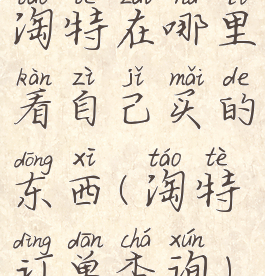 táo tè zài nǎ lǐ
淘特在哪里
kàn zì jǐ mǎi de
看自己买的
dōng xī táo tè
东西(淘特
dìng dān chá xún
订单查询)